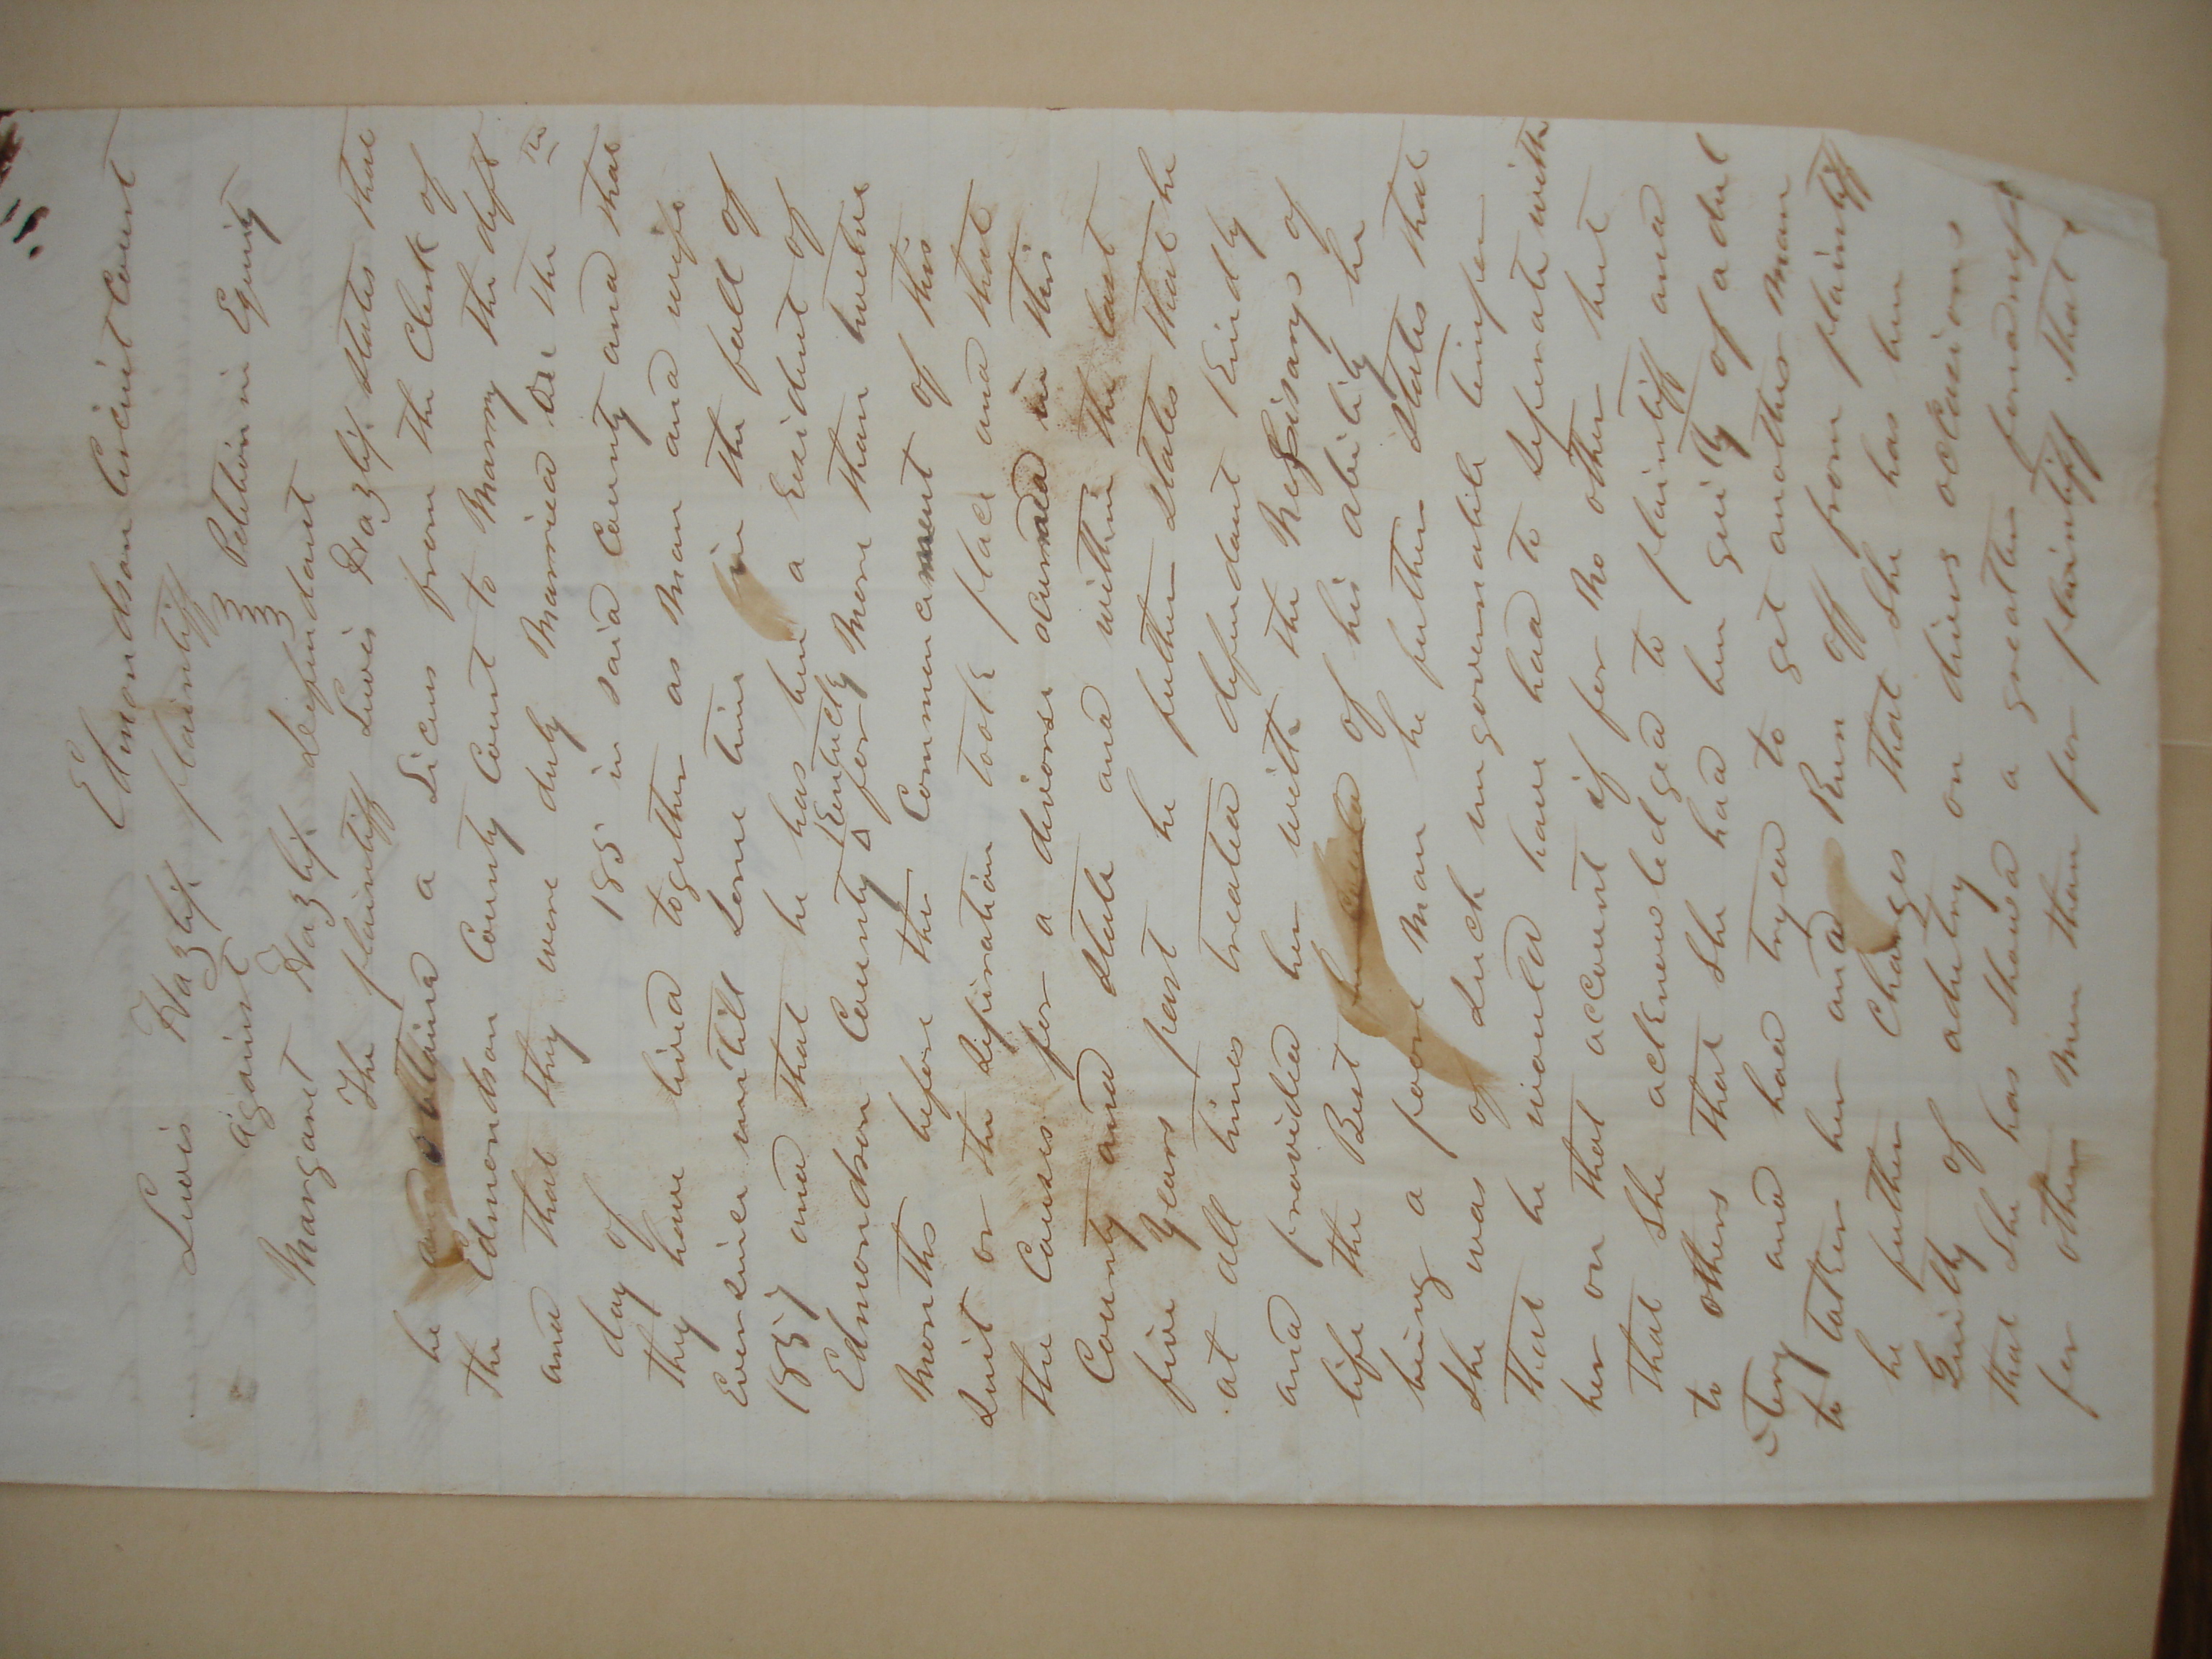 Edmondson Circuit Court
Lewis Hazlip plaintiff
against } Petition in Equity
Margaret Hazlip defendant
The plaintiff Lewis Hazlip states that
he obtaind a Licens from the Clerk of
the Edmondson County Court to Marry the deft
and that they were duly Married on the
day of 185 in said County and that
they have lived together as Man and wife
Ever since untill some time in the fall of
1857 and that he has been a Resident of
Edmondson County Kentucky for More than twelve
Months before the Commencement of this
suit or the seperation took place and that
the Causes for a divorse occurred in this
County and state and within the last
five years past he further states that he
at all times treated defendant Kindly
and provided her with the Nessisarys of
life the Best he could of his ability he
being a poor Man he further states that
she was of such ungovernable temper
that he would have had to seperate with
her on that account if for no other but
that she acknowledged to plaintiff and
to others that she had ben guilty of adul
tery and had tryed to get another Man
to taken her and Run off from plaintiff
he further Charges that she has ben
Guilty of adultry on divers occasions
that she has shown a greatter fondness
for other Men than for plaintiff that